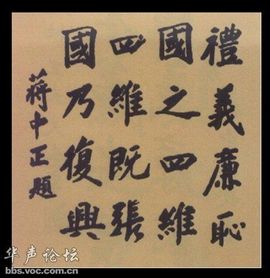 禮義廉恥
國之四維
四維既張
國乃復興
蔣中正題
华声论坛
bbs.voc.com.cn